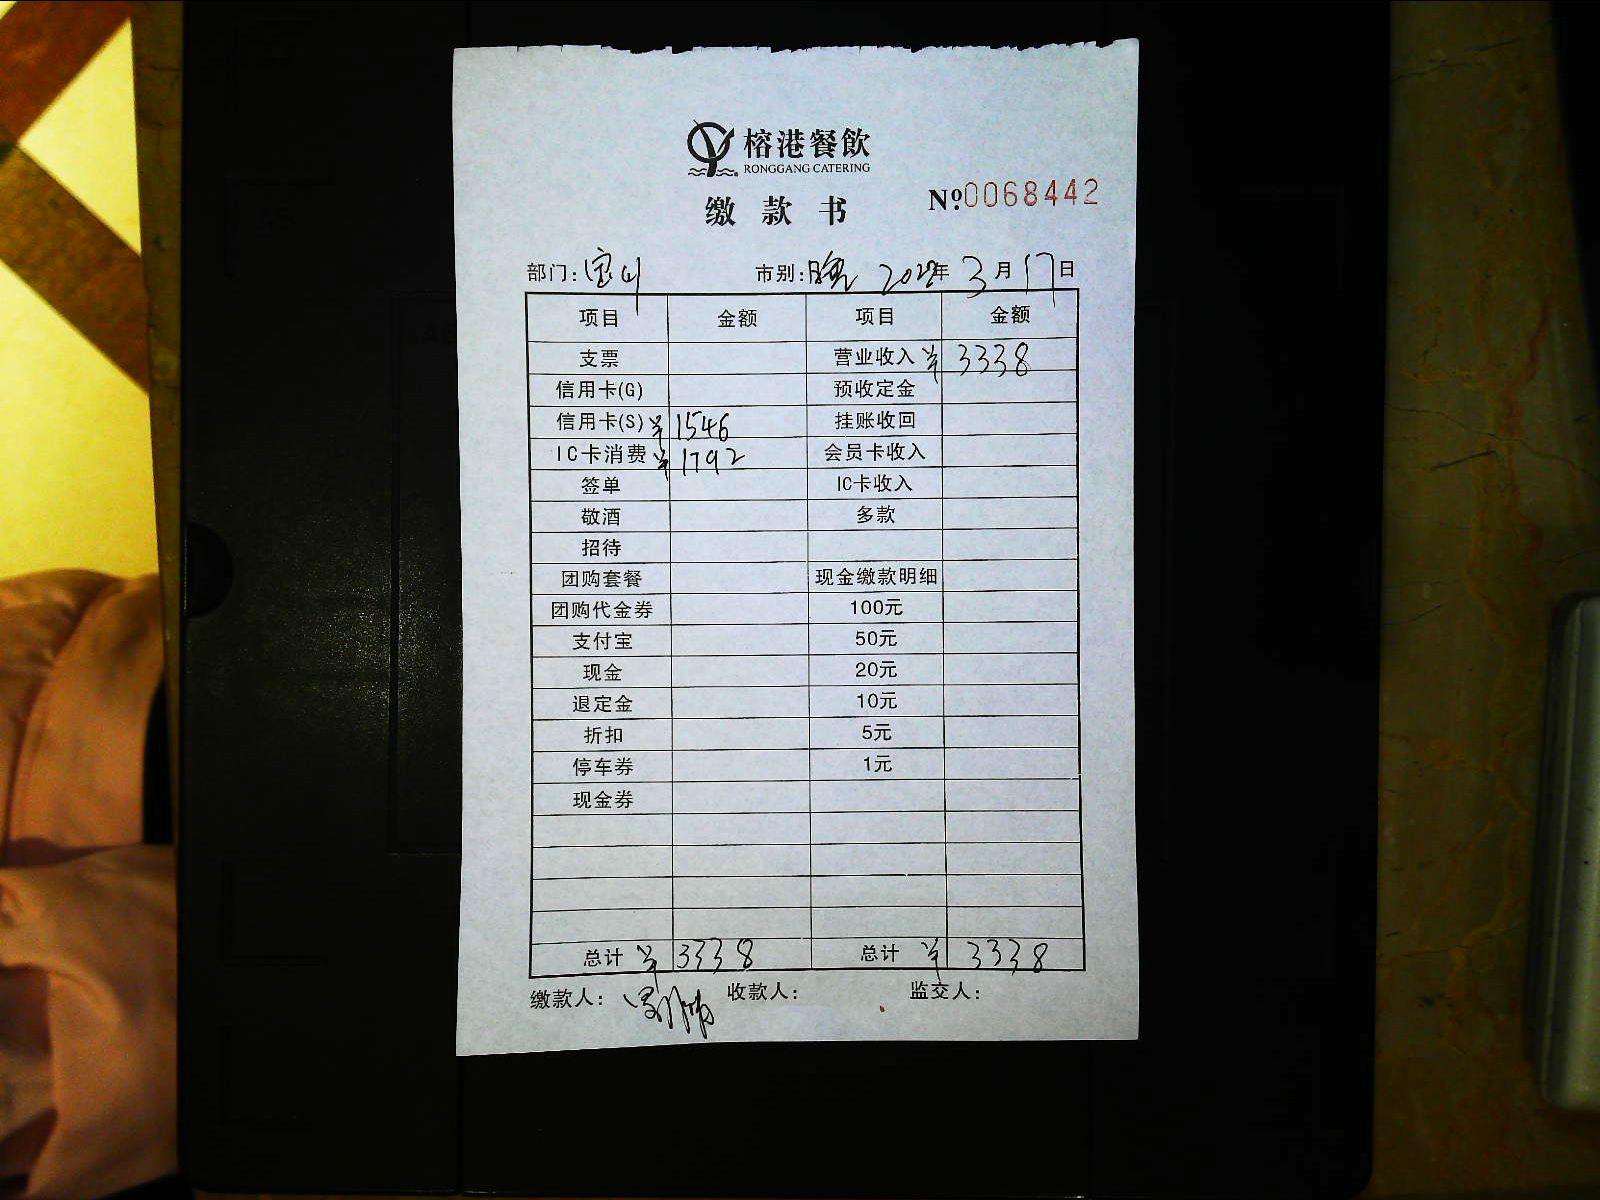 榕港餐飲
RONGGANG CATERING
缴款书
Nº0068442
部门: 市别:晚 2022年3月17日
项目 金额 项目 金额
支票 营业收入 ¥3338
信用卡(G) 预收定金
信用卡(S) ¥1546 挂账收回
IC卡消费 ¥1792 会员卡收入
签单 IC卡收入
敬酒 多款
招待
团购套餐 现金缴款明细
团购代金券 100元
支付宝 50元
现金 20元
退定金 10元
折扣 5元
停车券 1元
现金券
总计 ¥3338 总计 ¥3338
缴款人: 收款人: 监交人: